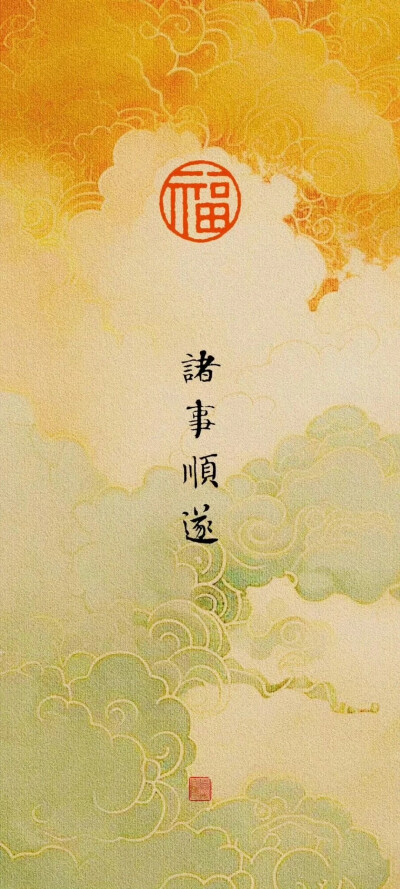 福
諸事順遂